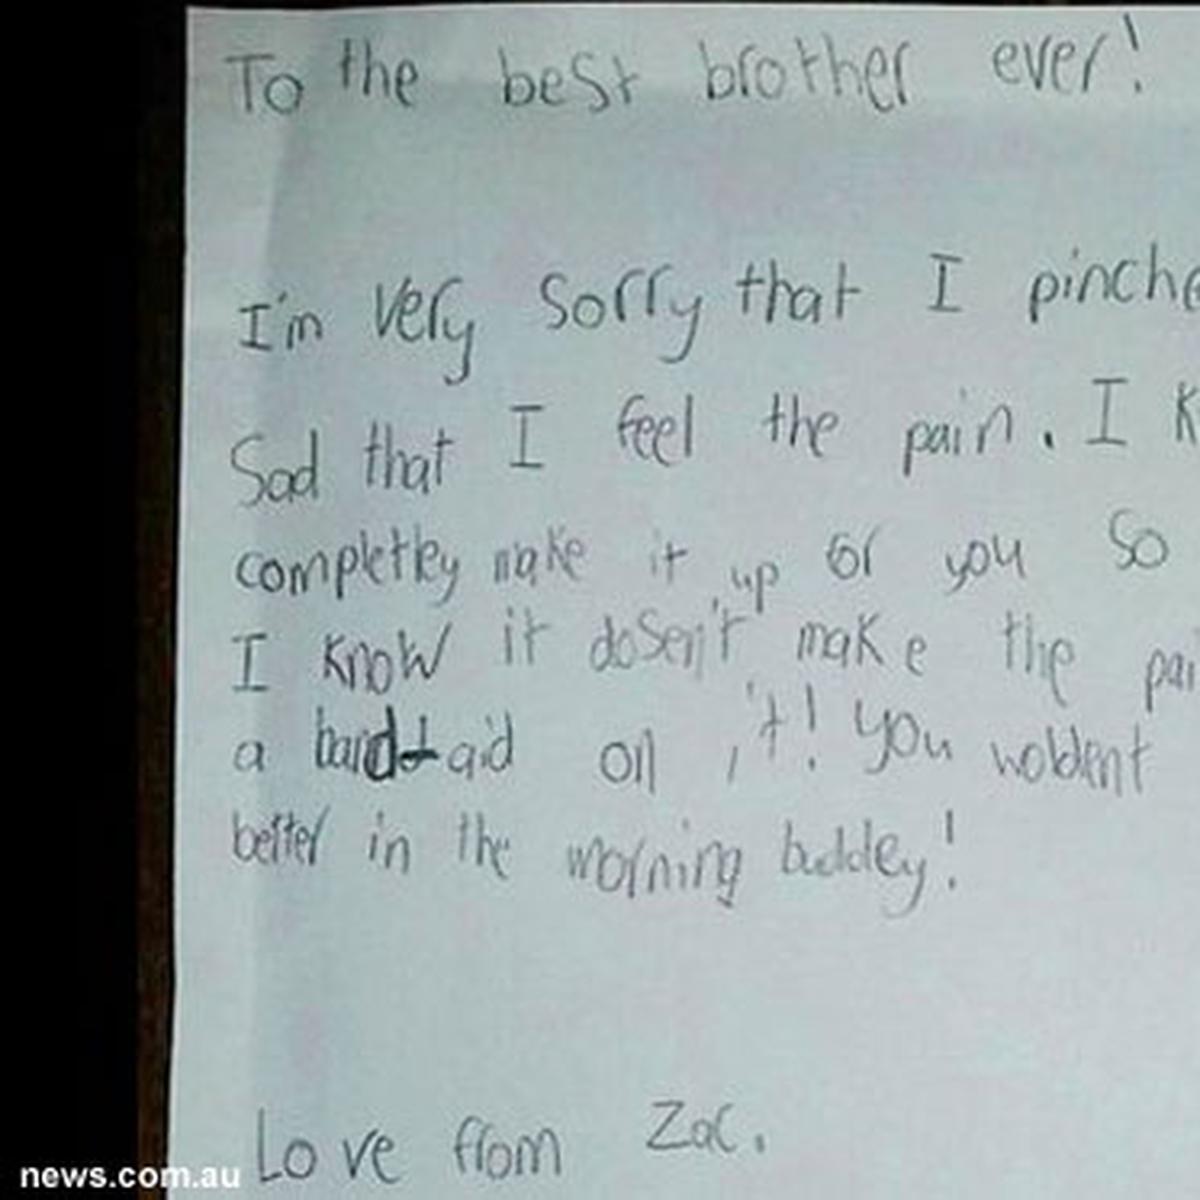 To the best brother ever!
I'm very sorry that I pinche
Sad that I feel the pain. I K
completley make it up for you So
I know it dosen't make the pai
a band-aid on it! you woldent
better in the morning buddey!
Love from Zac.
news.com.au